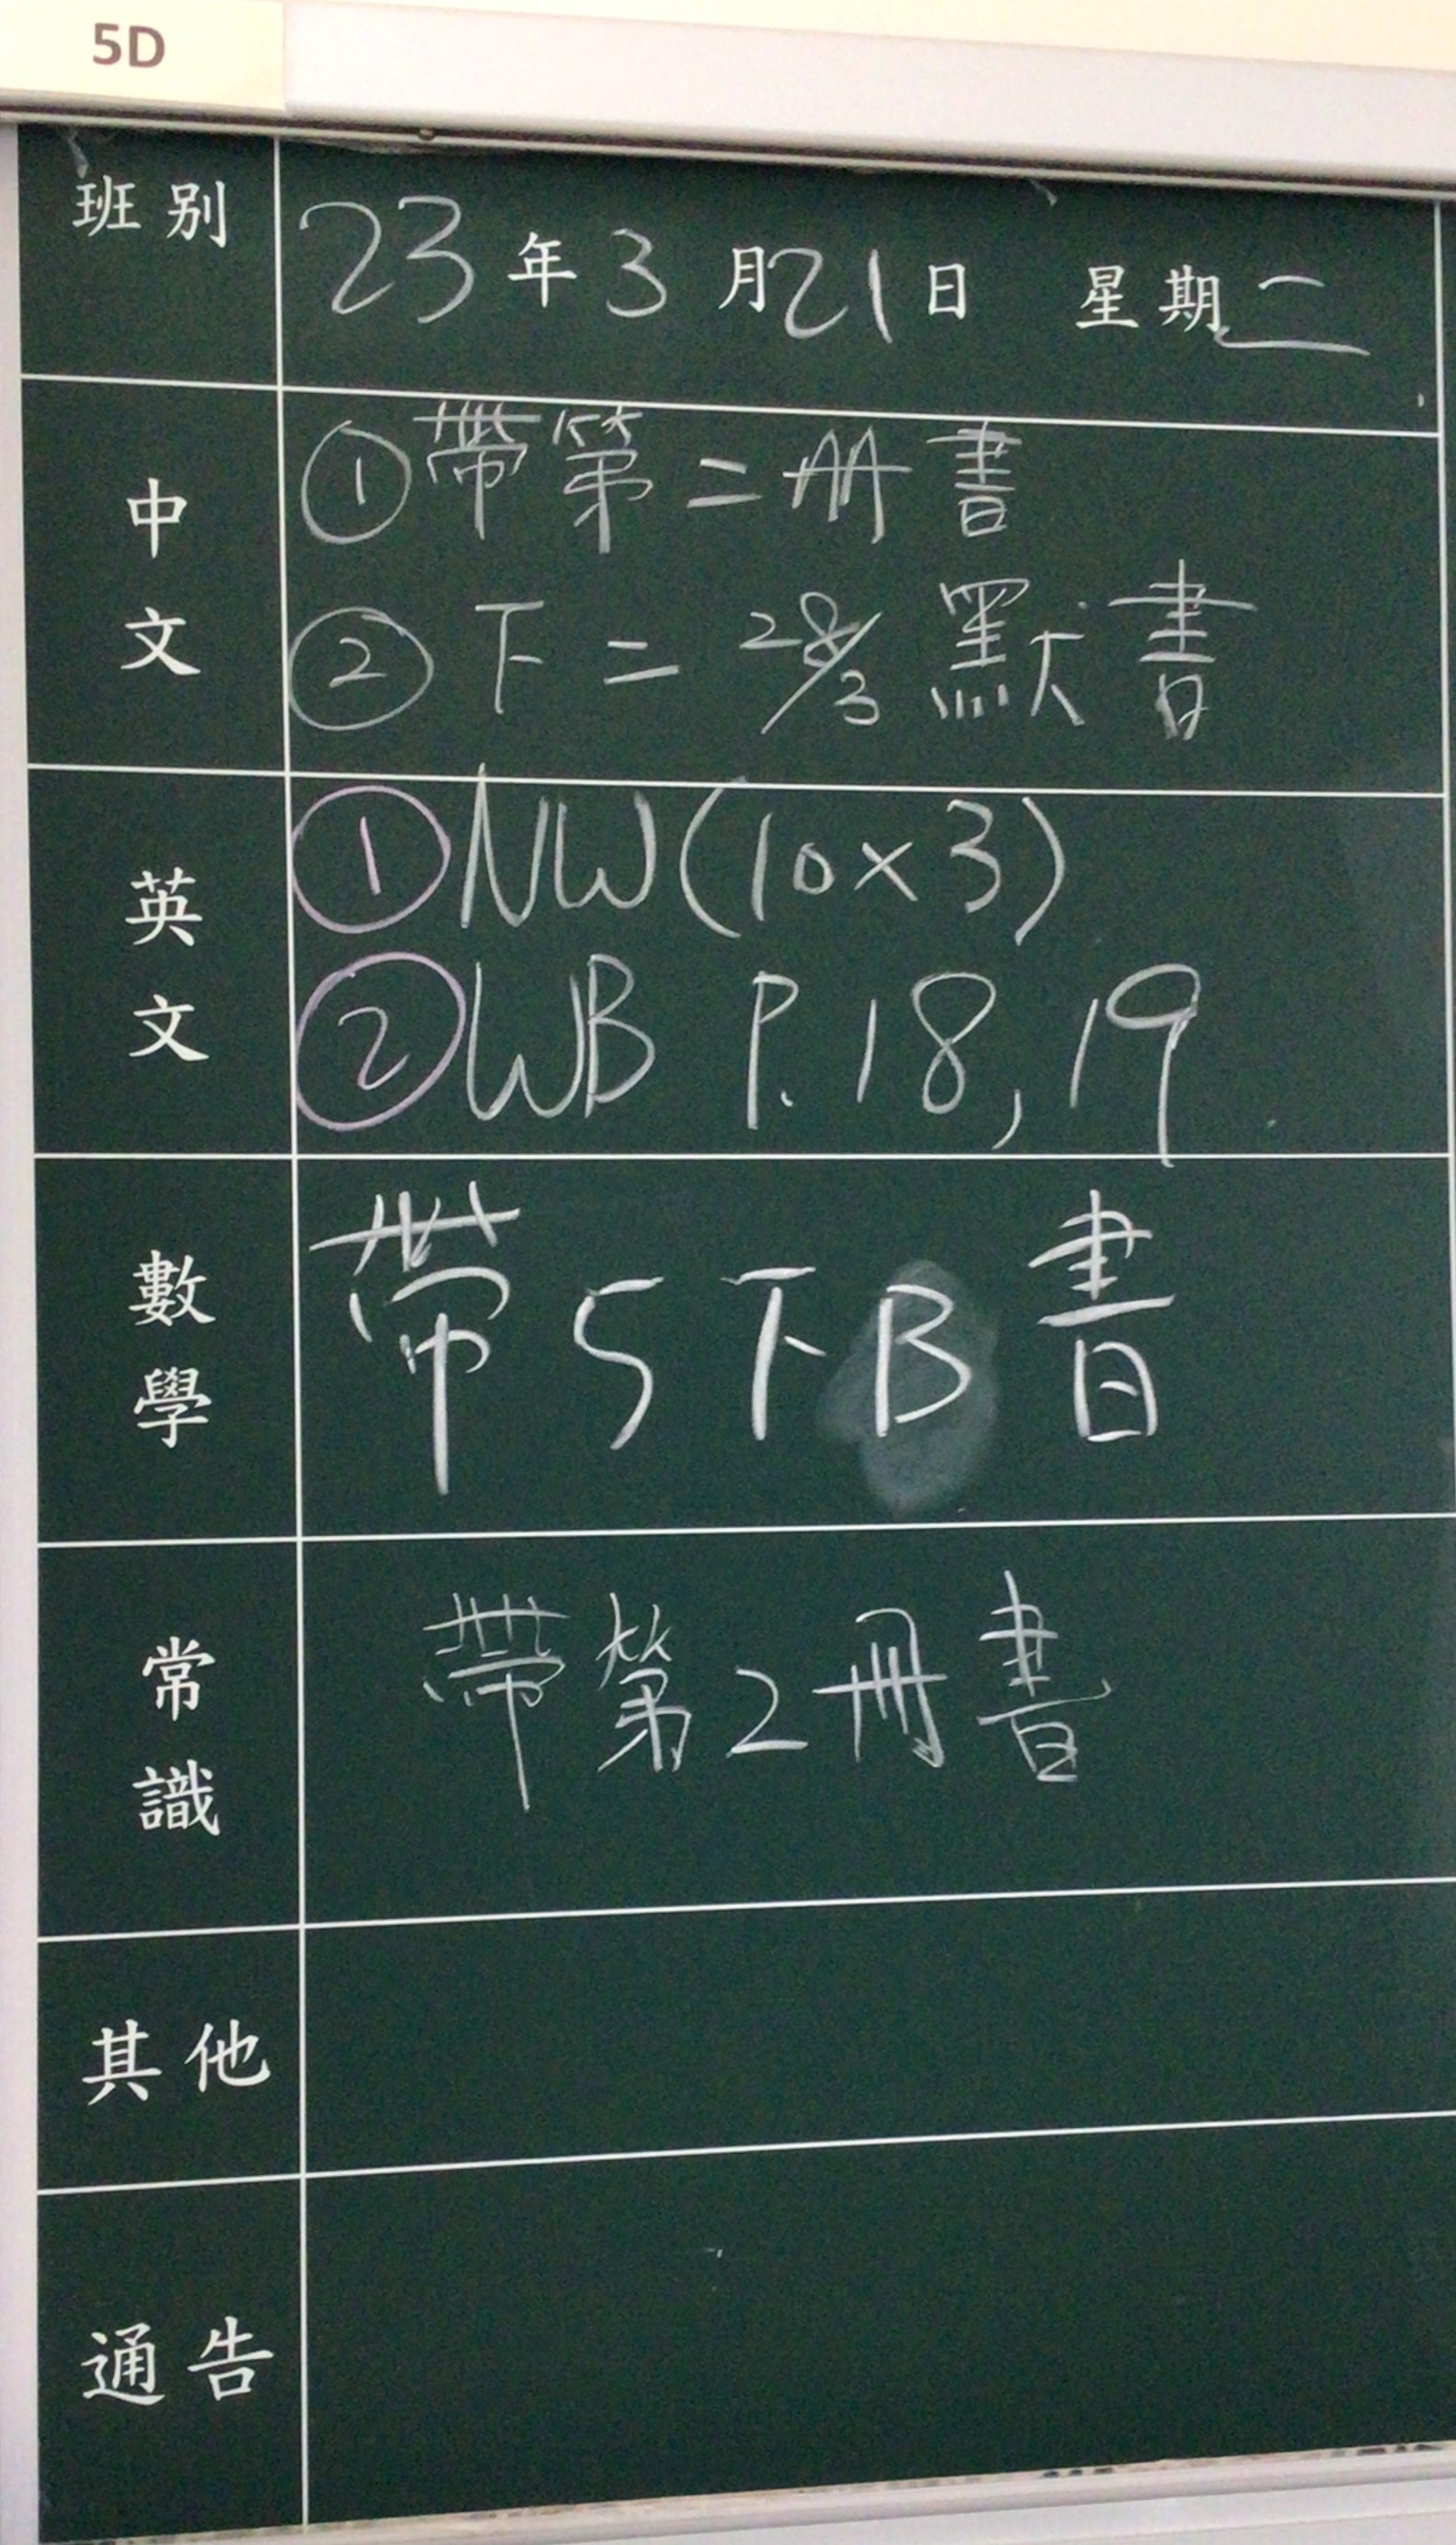 5D
班別 23年3月21日 星期二
中文 ①帶第二冊書
②下二 28/3 默書
英文 ①NW(10×3)
②WB P.18,19
數學 帶5下B書
常識 帶第2冊書
其他
通告